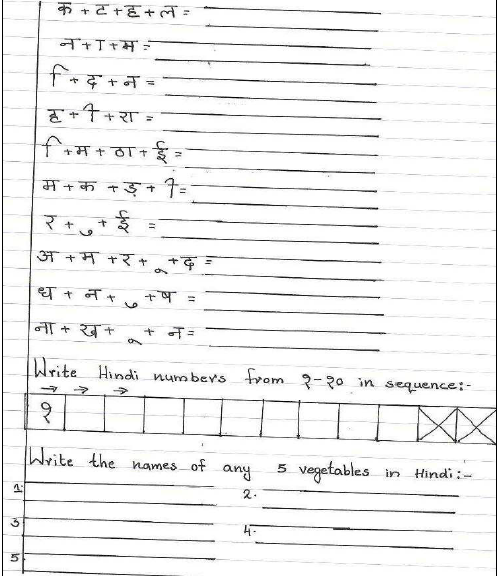 क + ट + ह + ल =
न + ा + म =
ि + द + न =
ह + ी + रा =
ि + म + ठा + ई =
म + क + ड़ + ी =
र + ु + ई =
अ + म + र + ू + द =
ध + न + ु + ष =
ना + ख + ू + न =
Write Hindi numbers from १-१० in sequence:-
→ → →
१
Write the names of any 5 vegetables in Hindi:-
1. 2.
3 4.
5